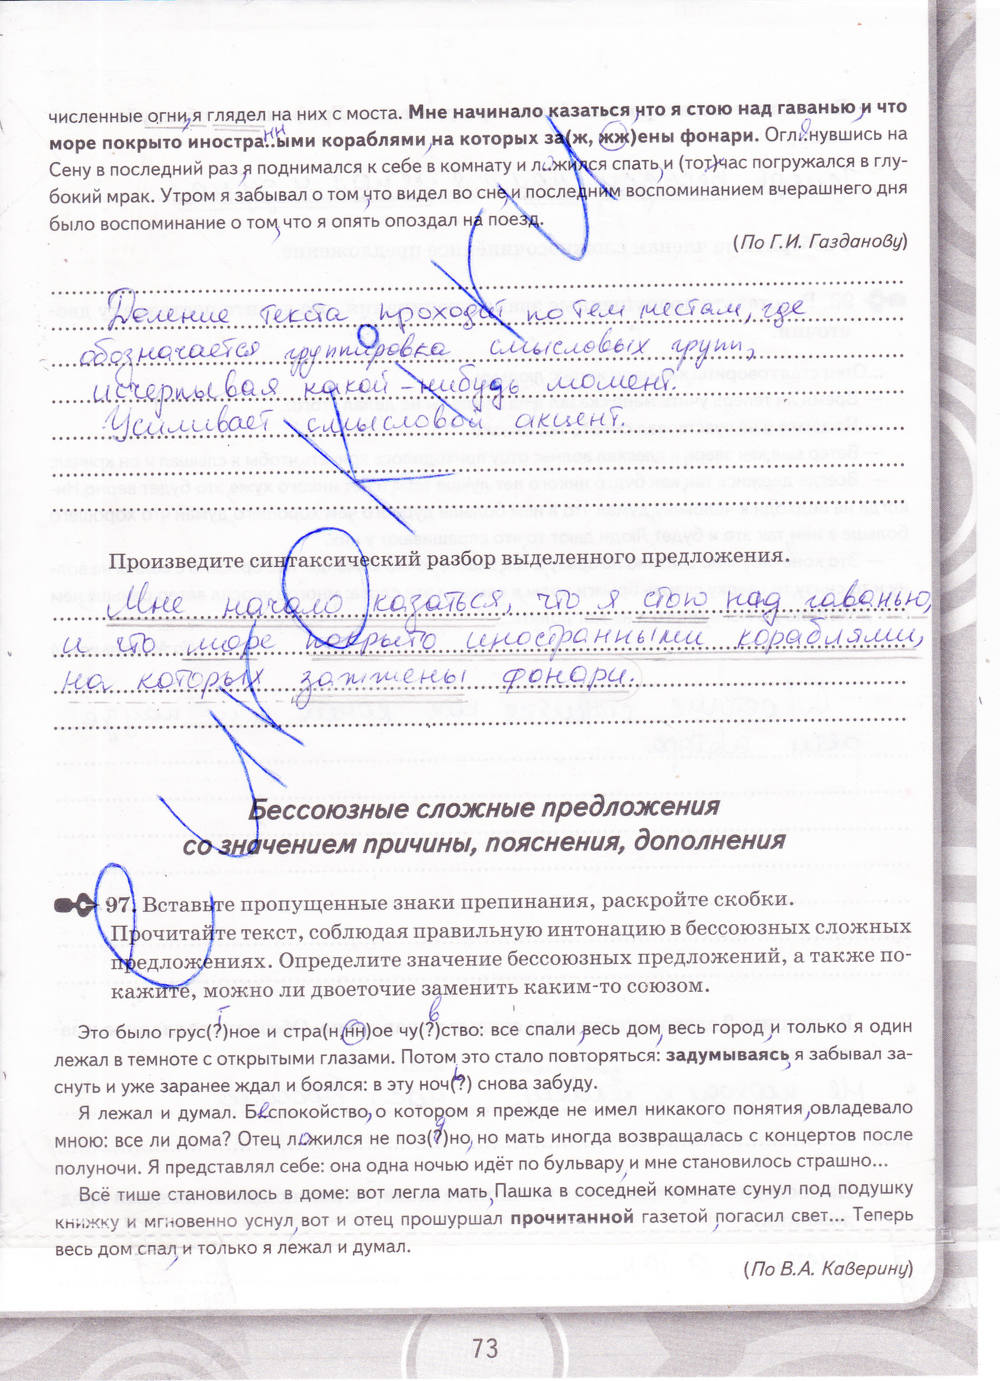 численные огни, я глядел на них с моста. Мне начинало казаться, что я стою над гаванью, и что
море покрыто иностра..ыми кораблями, на которых за(ж, жж)ены фонари. Огл..нувшись на
нн
я
Сену в последний раз, я поднимался к себе в комнату и ложился спать, и (тот)час погружался в глу-
бокий мрак. Утром я забывал о том, что видел во сне, и последним воспоминанием вчерашнего дня
было воспоминание о том, что я опять опоздал на поезд.
(По Г.И. Газданову)
Деление текста проходит по тем местам, где
обозначается группировка смысловых групп,
исчерпывая какой-нибудь момент.
Усиливает смысловой акцент.
Произведите синтаксический разбор выделенного предложения.
Мне начало казаться, что я стою над гаванью,
и что море покрыто иностранными кораблями,
на которых зажжены фонари.
Бессоюзные сложные предложения
со значением причины, пояснения, дополнения
97. Вставьте пропущенные знаки препинания, раскройте скобки.
Прочитайте текст, соблюдая правильную интонацию в бессоюзных сложных
предложениях. Определите значение бессоюзных предложений, а также по-
кажите, можно ли двоеточие заменить каким-то союзом.
т
в
Это было грус(?)ное и стра(н,нн)ое чу(?)ство: все спали, весь дом, весь город, и только я один
лежал в темноте с открытыми глазами. Потом это стало повторяться: задумываясь, я забывал за-
снуть и уже заранее ждал и боялся: в эту ноч(?) снова забуду.
ь
Я лежал и думал. Беспокойство, о котором я прежде не имел никакого понятия, овладевало
мною: все ли дома? Отец ложился не поз(?)но, но мать иногда возвращалась с концертов после
д
полуночи. Я представлял себе: она одна ночью идёт по бульвару, и мне становилось страшно...
Всё тише становилось в доме: вот легла мать, Пашка в соседней комнате сунул под подушку
книжку и мгновенно уснул, вот и отец прошуршал прочитанной газетой, погасил свет... Теперь
весь дом спал, и только я лежал и думал.
(По В.А. Каверину)
73